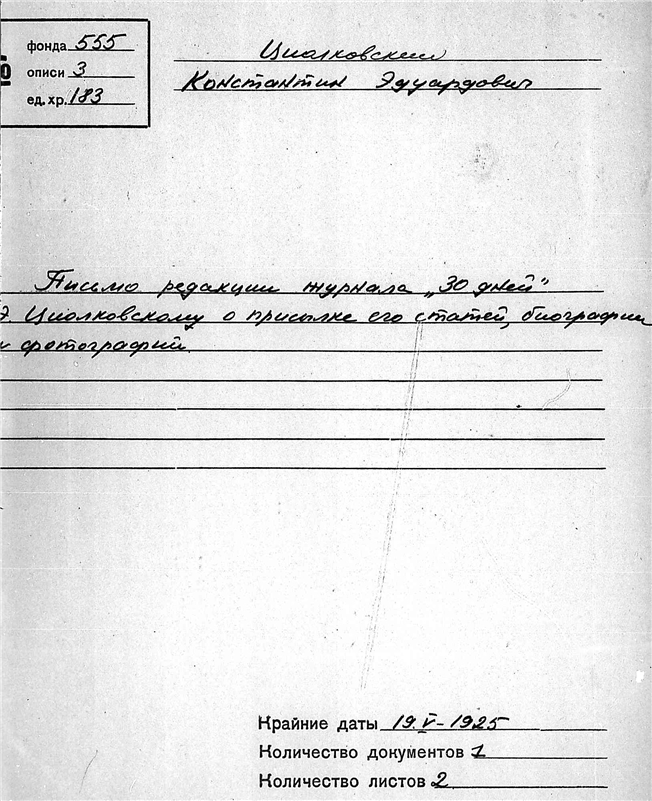 фонда 555
описи 3
ед. хр. 183
Циолковский
Константин Эдуардович
Письмо редакции журнала „30 дней"
Э. Циолковскому о присылке его статей, биографии
и фотографий.
Крайние даты 19.V-1925
Количество документов 1
Количество листов 2